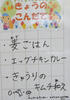 きょうの
こんだて
麦ごはん
エッグチキンカレー
きゅうりの
キムチあえ